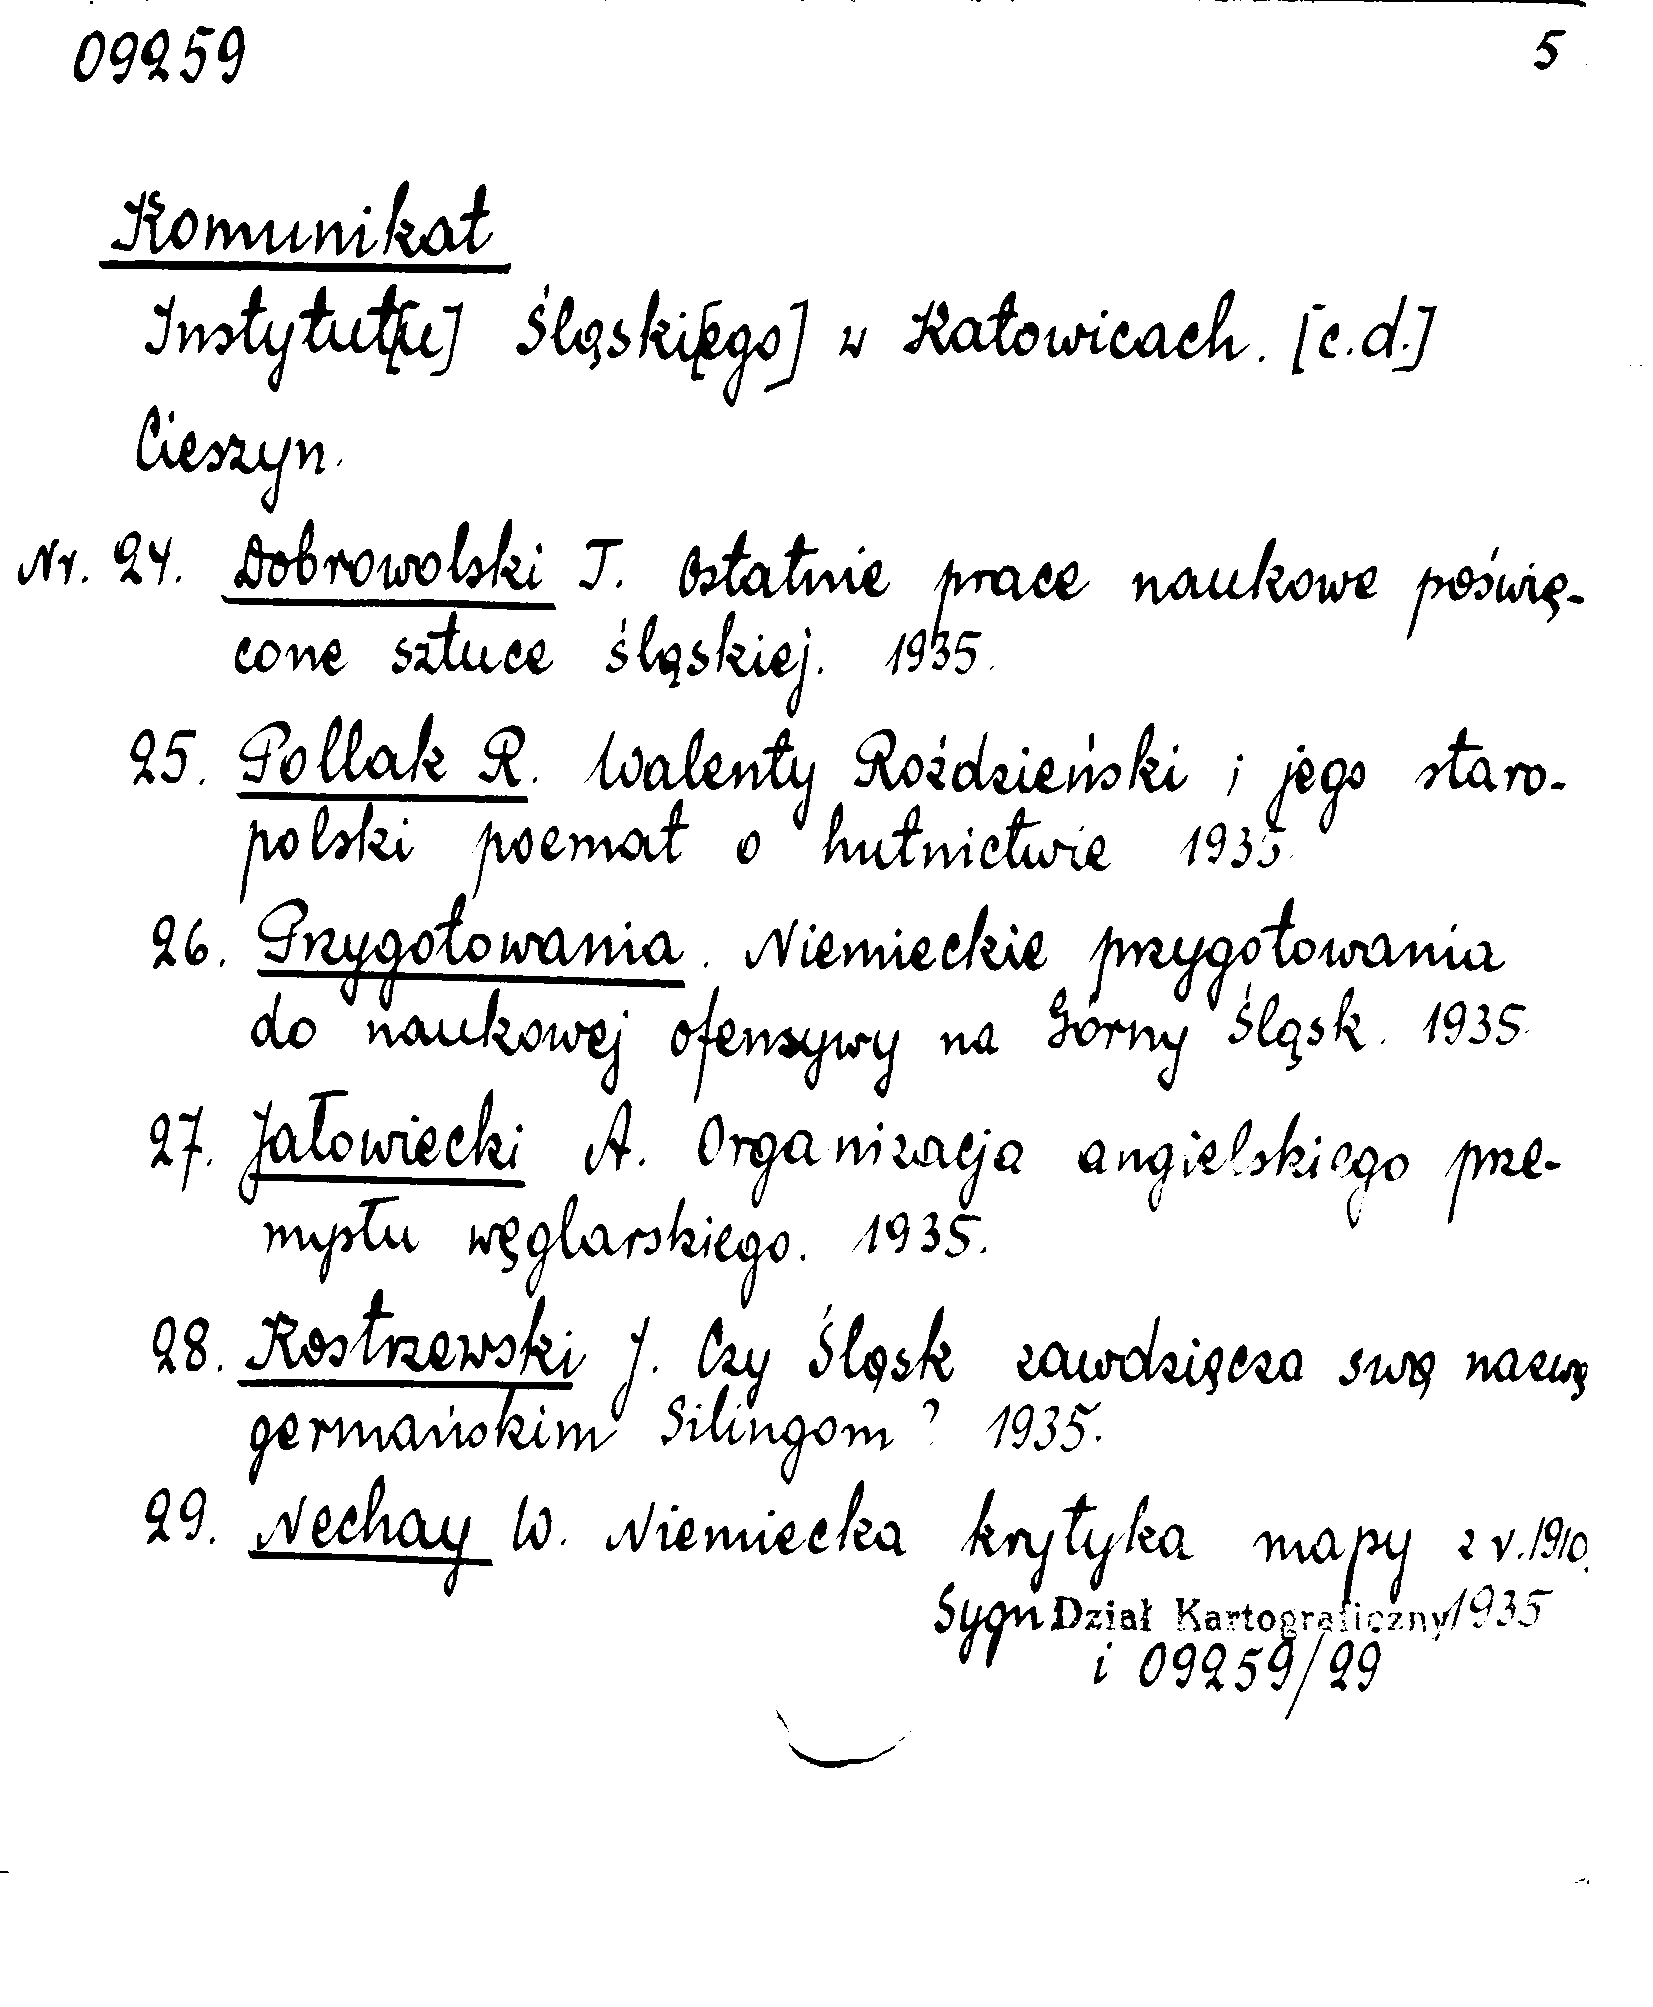 09259 5
Komunikat
Instytut[u] Śląski[ego] w Katowicach. [c.d.]
Cieszyn.
Nr. 24. Dobrowolski T. Ostatnie prace naukowe poświę-
cone sztuce śląskiej. 1935.
25. Pollak R. Walenty Roździeński i jego staro-
polski poemat o hutnictwie 1935.
26. Przygotowania. Niemieckie przygotowania
do naukowej ofensywy na Górny Śląsk. 1935.
27. Jałowiecki A. Organizacja angielskiego prze-
mysłu węglarskiego. 1935.
28. Kostrzewski J. Czy Śląsk zawdzięcza swą nazwę
germańskim Silingom? 1935.
29. Nechay W. Niemiecka krytyka mapy z r. 1910.
Sygn Dział Kartograficzny 1935
i 09259/29